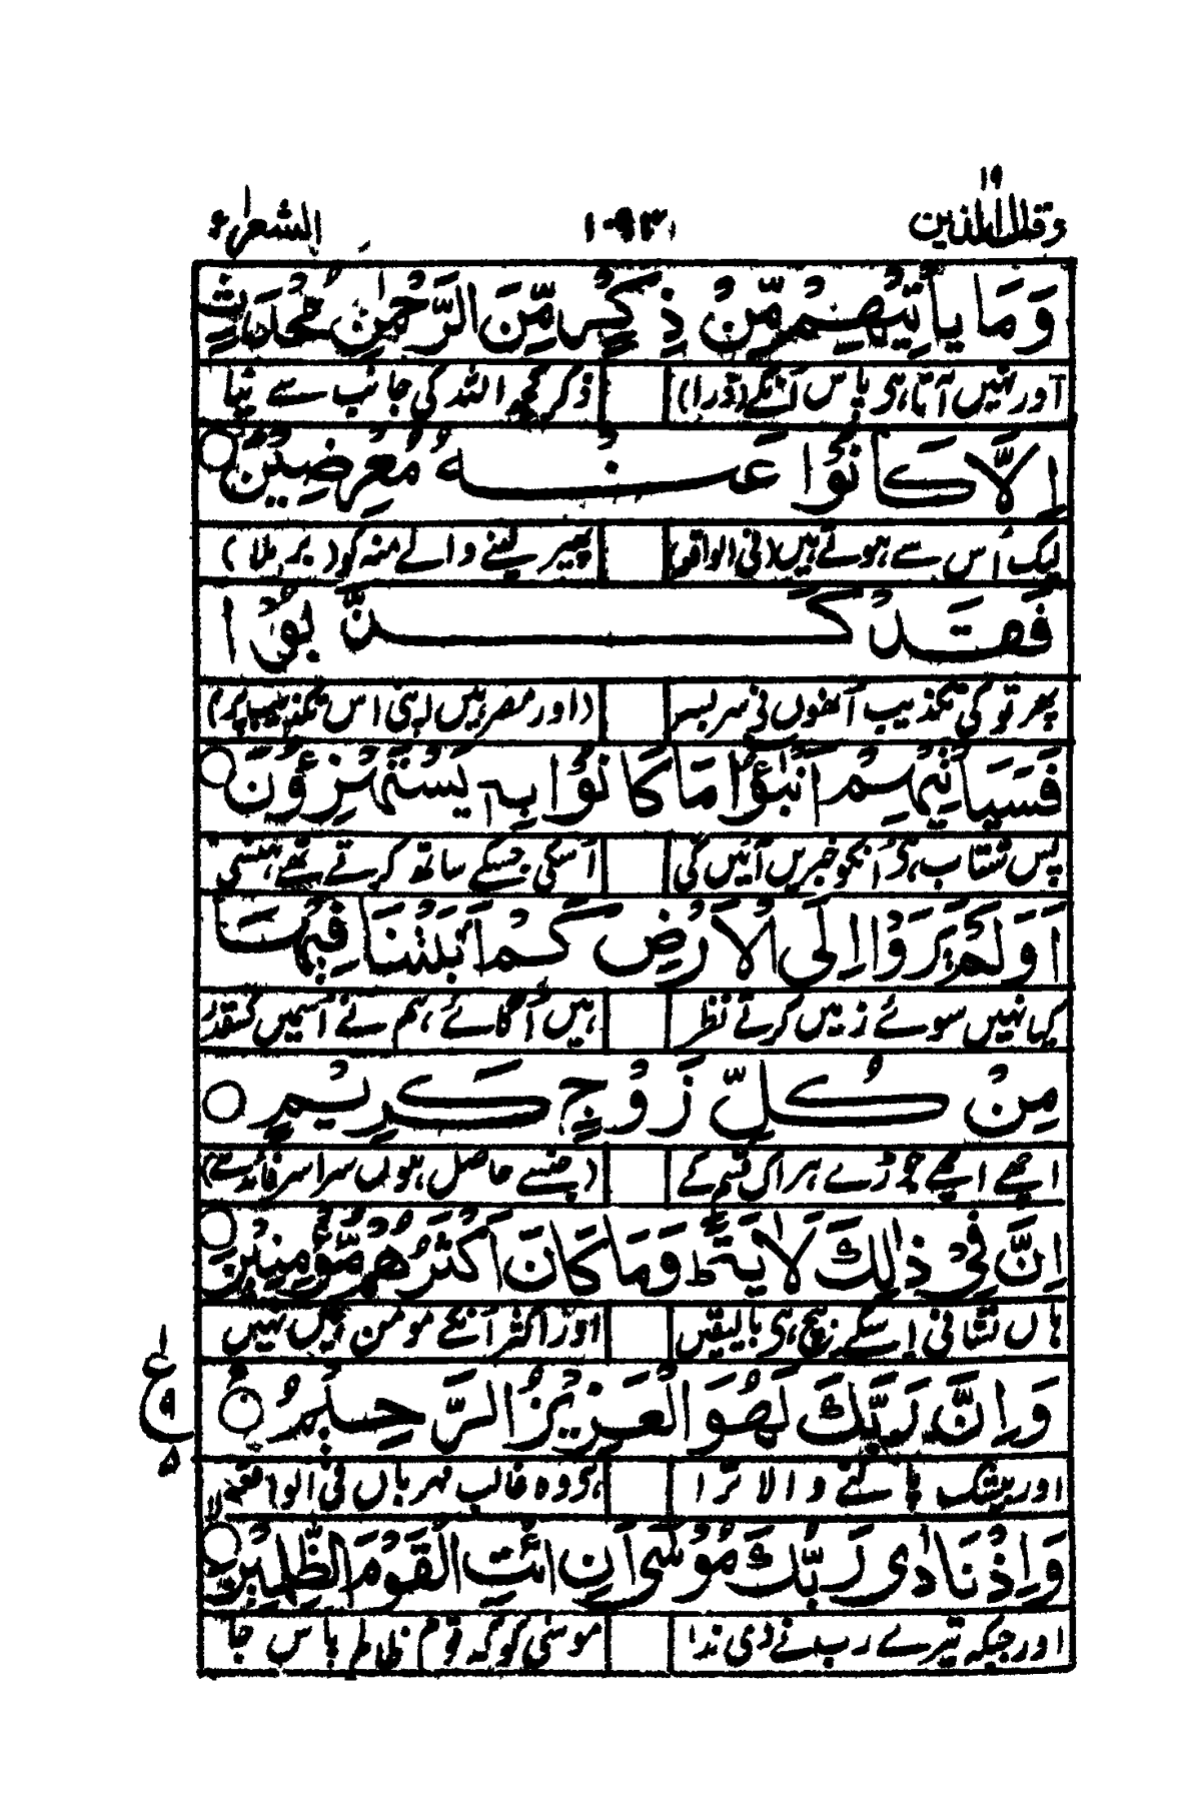 ۱۹
وقال الذین ۱۰۹۳ الشعراء
وَمَا يَأْتِيْهِمْ مِّنْ ذِكْرٍ مِّنَ الرَّحْمٰنِ مُحْدَثٍ
اور نہیں آتا ہی پاس اُنکے (ذرا) ذکر کچھ اللہ کی جانب سے نیا
اِلَّا كَانُوْا عَنْهُ مُعْرِضِيْنَ
لیک اُس سے ہوتے ہیں (فی الواقع) پھیر لینے والے منہ کو (برملا)
فَقَدْ كَذَّبُوْا
پھر تو کی تکذیب اُنھوں نی سر بسر (اور مصر ہیں اپنی اس تکذیب پر)
فَسَيَأْتِيْهِمْ اَنْۢبٰٓؤُا مَا كَانُوْا بِهٖ يَسْتَهْزِءُوْنَ
پس شتاب ہی اُنکو خبریں آئیں گی اُسکی جسکے ساتھ کرتے تھے ہنسی
اَوَلَمْ يَرَوْا اِلَى الْاَرْضِ كَمْ اَنْۢبَتْنَا فِيْهَا
کیا نہیں سوئے زمیں کرتے نظر ہیں اُگائے ہم نے اُسمیں کسقدر
مِنْ كُلِّ زَوْجٍ كَرِيْمٍ
اچھے اچھے جوڑے ہر اک قسم کے (جنسے حاصل ہوں سراسر فائدے)
اِنَّ فِيْ ذٰلِكَ لَاٰيَةً ؕ وَمَا كَانَ اَكْثَرُهُمْ مُّؤْمِنِيْنَ
ہاں نشانی اِسکے بیچ ہی بالیقیں اور اکثر اُنکے مومن نہیں
وَاِنَّ رَبَّكَ لَهُوَ الْعَزِيْزُ الرَّحِيْمُ
ع ۹ ۵
اور بیشک پالنے والا ترا ہی وہ غالب مہرباں فی الواقعہ
وَاِذْ نَادٰى رَبُّكَ مُوْسٰٓى اَنِ ائْتِ الْقَوْمَ الظّٰلِمِيْنَ
اور جبکہ تیرے رب نے دی ندا موسیٰ کو کہ قوم ظالم پاس جا